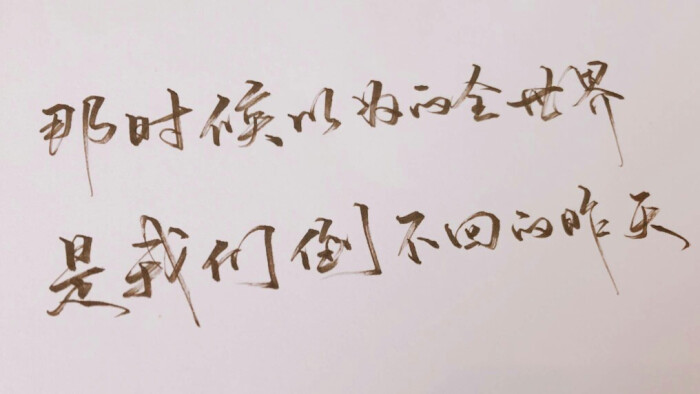 那时候以为的全世界
是我们倒不回的昨天